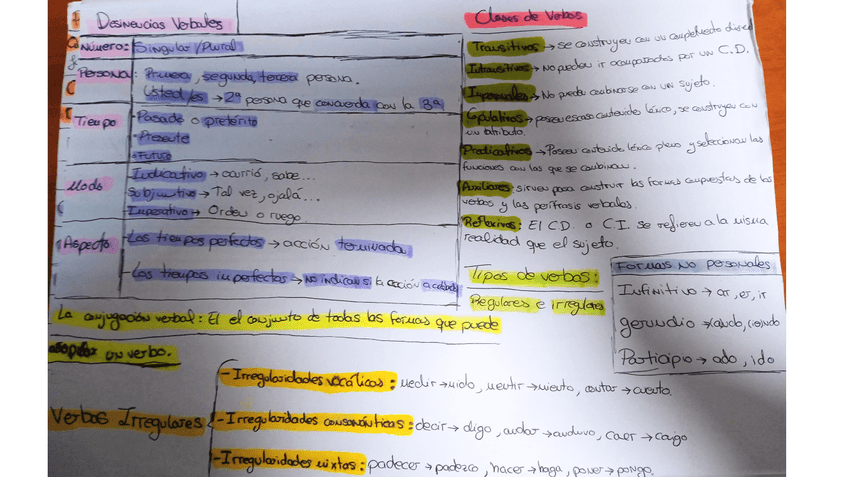 Desinencias Verbales
Número: Singular/Plural
Persona: Primera, segunda, tercera persona.
Usted/es → 2ª persona que concuerda con la 3ª
Tiempo
- Pasado o pretérito
- Presente
- Futuro
Modo
- Indicativo → ocurrió, sabe...
- Subjuntivo → Tal vez, ojalá...
- Imperativo → Orden o ruego.
Aspecto
- Los tiempos perfectos → acción terminada.
- Los tiempos imperfectos → no indican la acción acabada
La conjugación verbal: El el conjunto de todas las formas que puede
adoptar un verbo.
Clases de Verbos
Transitivos → se construyen con un complemento directo
Intransitivos → No pueden ir acompañados por un C.D.
Impersonales → No puede combinarse con un sujeto.
Copulativos → poseen escaso contenido léxico, se construyen con
un atributo.
Predicativos → Poseen contenido léxico pleno y seleccionan las
funciones con las que se combinan.
Auxiliares: sirven para construir las formas compuestas de los
verbos y las perífrasis verbales.
Reflexivos: El CD. o C.I. se refieren a la misma
realidad que el sujeto.
Tipos de verbos:
Regulares e irregulares
Formas no personales
Infinitivo → ar, er, ir
gerundio → ando, (ie)ndo
Participio → ado, ido
Verbos Irregulares
- Irregularidades vocálicas: medir → mido, mentir → miento, contar → cuento.
- Irregularidades consonánticas: decir → digo, andar → anduvo, caer → caigo
- Irregularidades mixtas: padecer → padezco, hacer → haga, poner → pongo.